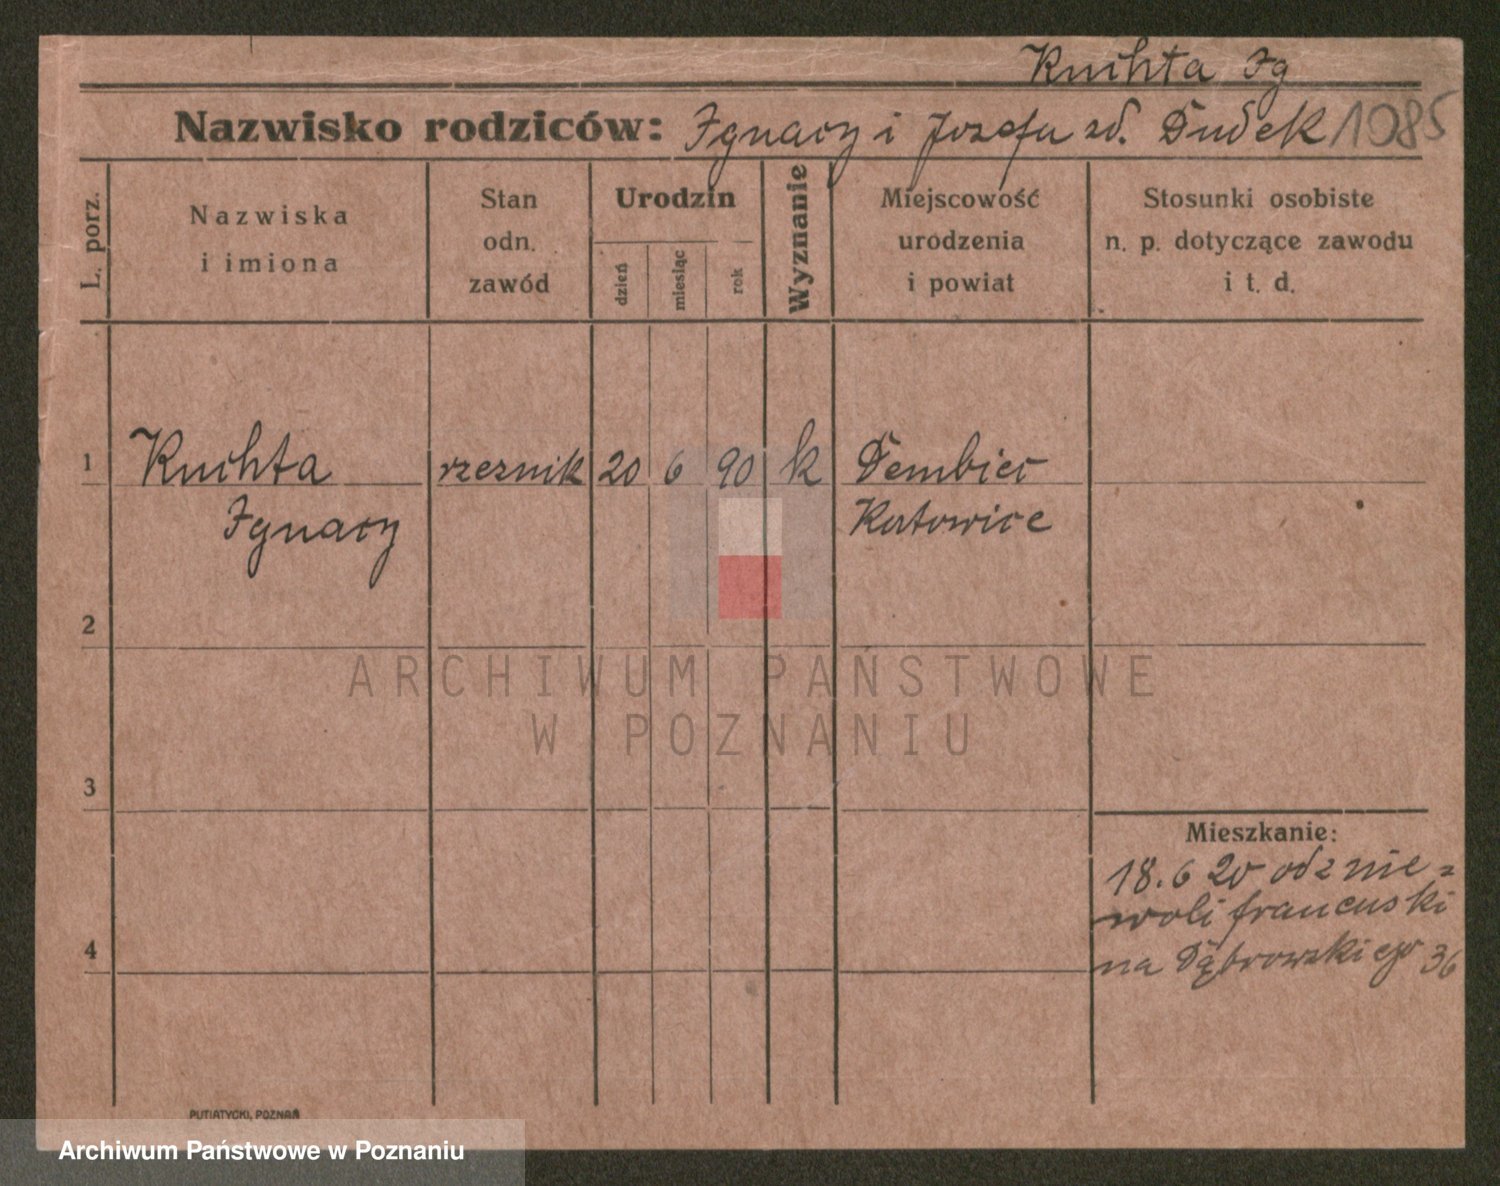 Kuchta Ig
Nazwisko rodziców: Ignacy i Jozefa zd. Dudek 1085
L. porz.
Nazwiska
i imiona
Stan
odn.
zawód
Urodzin
dzień
miesiąc
rok
Wyznanie
Miejscowość
urodzenia
i powiat
Stosunki osobiste
n. p. dotyczące zawodu
i t. d.
1 Kuchta rzeznik 20 6 90 k Dembiec
Ignacy Katowice
2
ARCHIWUM PAŃSTWOWE
W POZNANIU
3
Mieszkanie:
18.6 20 od z nie=
woli francuski
4 na Dąbrowskiego 36
PUTIATYCKI, POZNAŃ
Archiwum Państwowe w Poznaniu